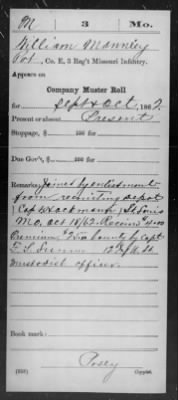 M 3 Mo.
William Manning
Pvt., Co. E, 3 Reg't Missouri Infantry.
Appears on
Company Muster Roll
for Sept & Oct, 1862
Present or absent Present
Stoppage, $ 100 for
Due Gov't, $ 100 for
Remarks: Joined by enlistment
from recruiting depot
St Louis
Mo. Oct 18/62. Received $4.00
Premium, $25.00 bounty by Capt
12 U.S.
officer.
Book mark:
Posey
(358) Copyist.